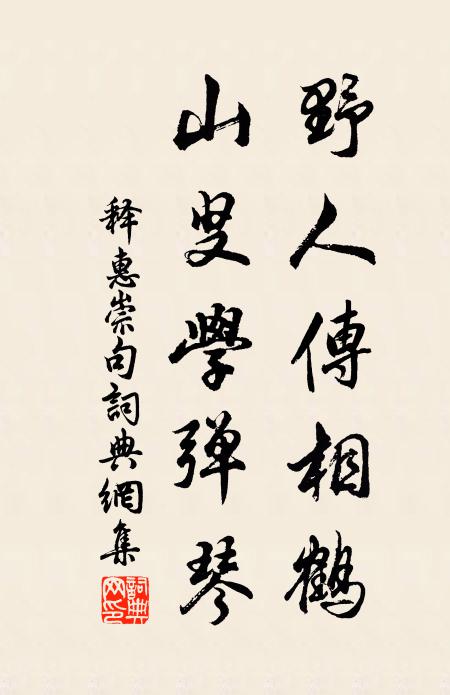 野人傳相鶴
山叟學弹琴
释惠崇句詞典網集
詞典网印